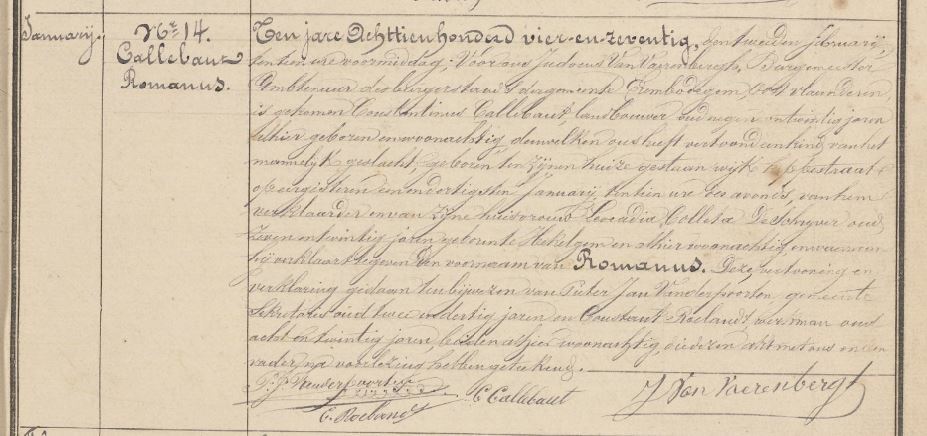 Januarij.
No 14.
Callebaut
Romanus.
Ten jare Achttienhonderd vier-en-zeventig, den tweeden februarij,
ten tien ure voormiddag, Voor ons Judocus Van Vaerenbergh, Burgemeester
Ambtenaar des burgerstands der gemeente Erembodegem, Oost vlaanderen,
is gekomen Constantinus Callebaut, landbouwer oud negen en twintig jaren
alhier geboren en woonachtig, denwelken ons heeft vertoond een kind van het
mannelijk geslacht, geboren ten zijnen huize gestaan wijk
op eergisteren een en dertigsten Januarij, ten tien ure des avonds, van hem
verklaarder en van zijne huisvrouw Leocadia Colleta De Schrijver oud
zeven en twintig jaren geboren te Hekelgem en alhier woonachtig, en waeraan
hij verklaart te geven den voornaam van Romanus. Deze vertooning en
verklaring gedaan ten bijwezen van Pieter Jan Vanderpoorten, gemeente
Sekretaris oud twee en dertig jaren en Constant Roelandt, veerman oud
acht en twintig jaren, beiden alhier woonachtig, die dezen akt met ons en den
vader, na voorlezing hebben geteekend.
P. J. Vanderpoorten
C. Callebaut
J Van Vaerenbergh
C. Roelandt